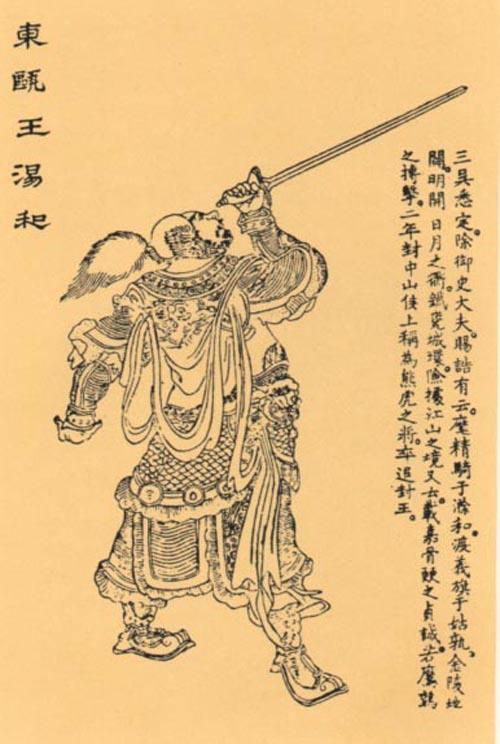 東甌王湯和
三吳悉定。除御史大夫。賜誥有云。麾精騎于滁和。渡義旗于姑孰。金陵地
闢。明開日月之衢。鐵甕城環。險據江山之境。又云。載嘉骨鯁之貞誠。若鷹鸇
之搏擊。二年封中山侯。上稱為熊虎之將。卒追封王。